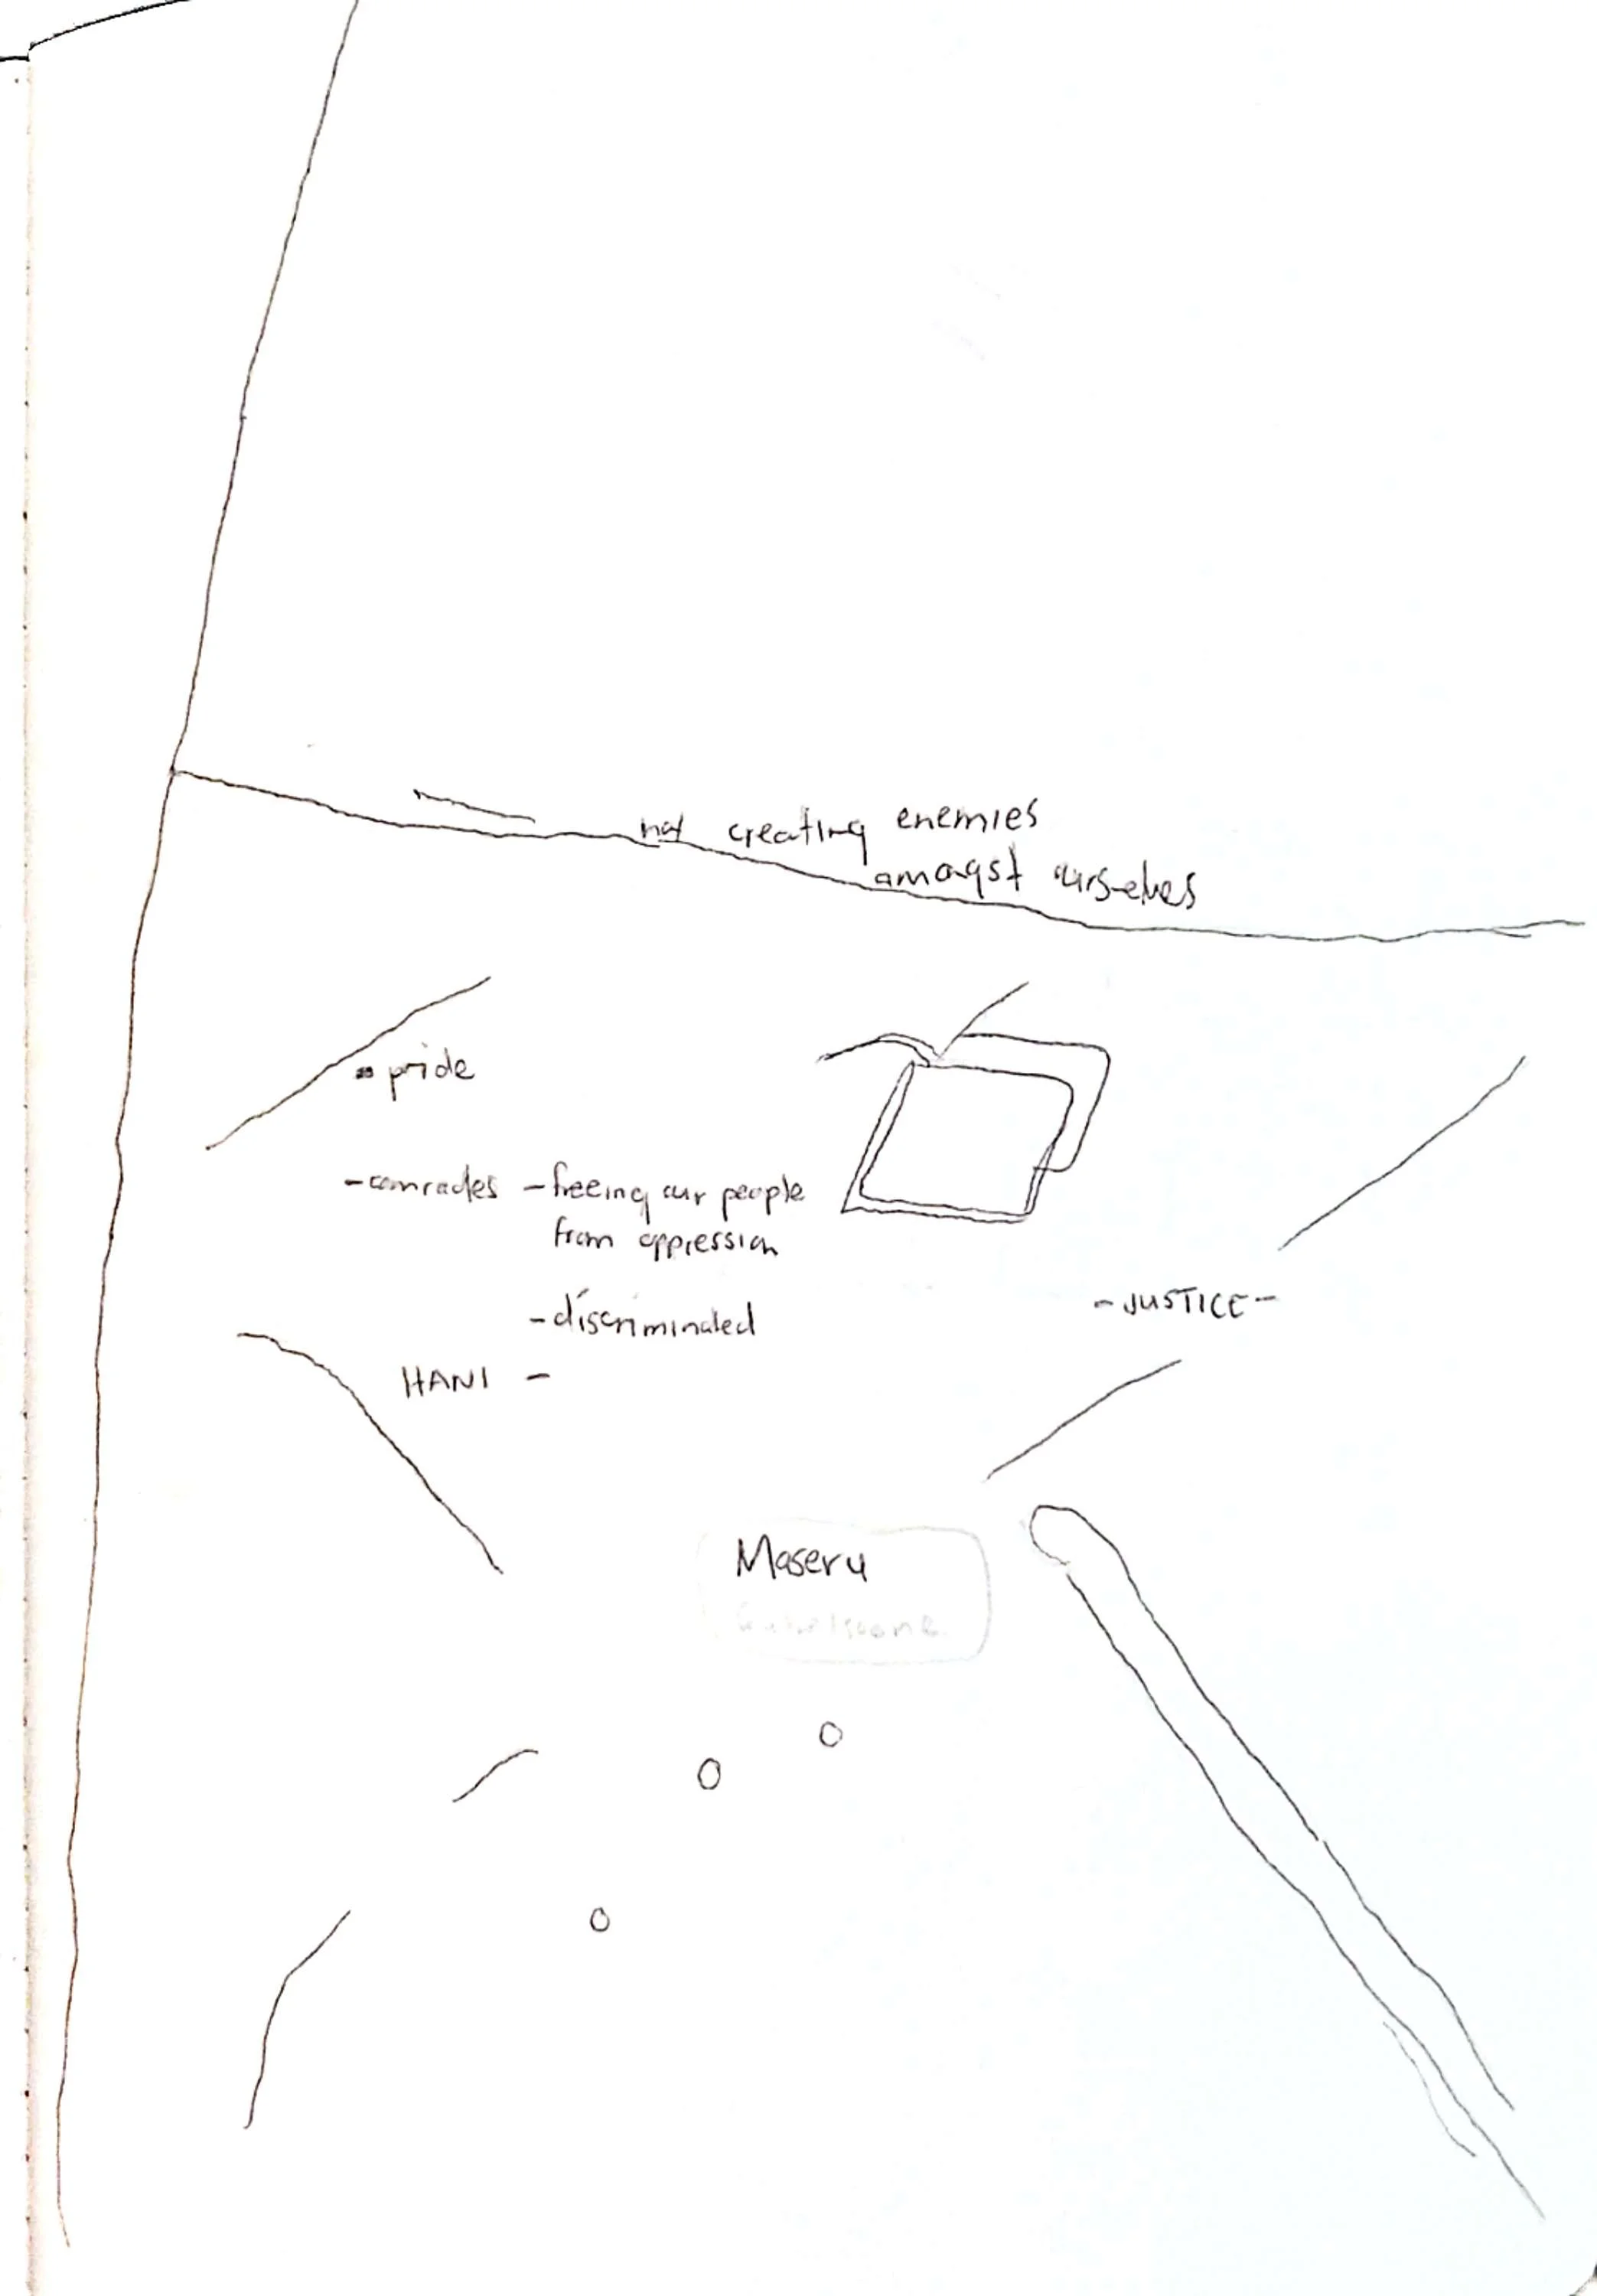 not creating enemies
amongst ourselves
- pride
- comrades - freeing our people
from oppression
- discriminated
- JUSTICE -
HANI -
Maseru